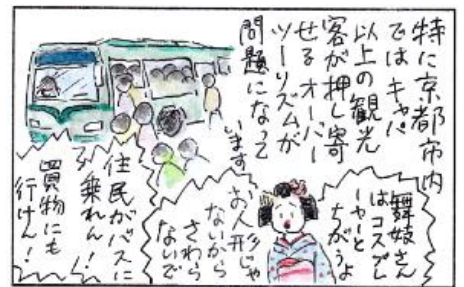 特に京都市内
ではキャパ
以上の観光
客が押し寄
せるオーバー
ツーリズムが
問題になって
います
舞妓さん
はコスプレ
ーヤーと
ちがうよ
お人形じゃ
ないから
さわら
ないで
住民がバスに
乗れん!
買物にも
行けん!